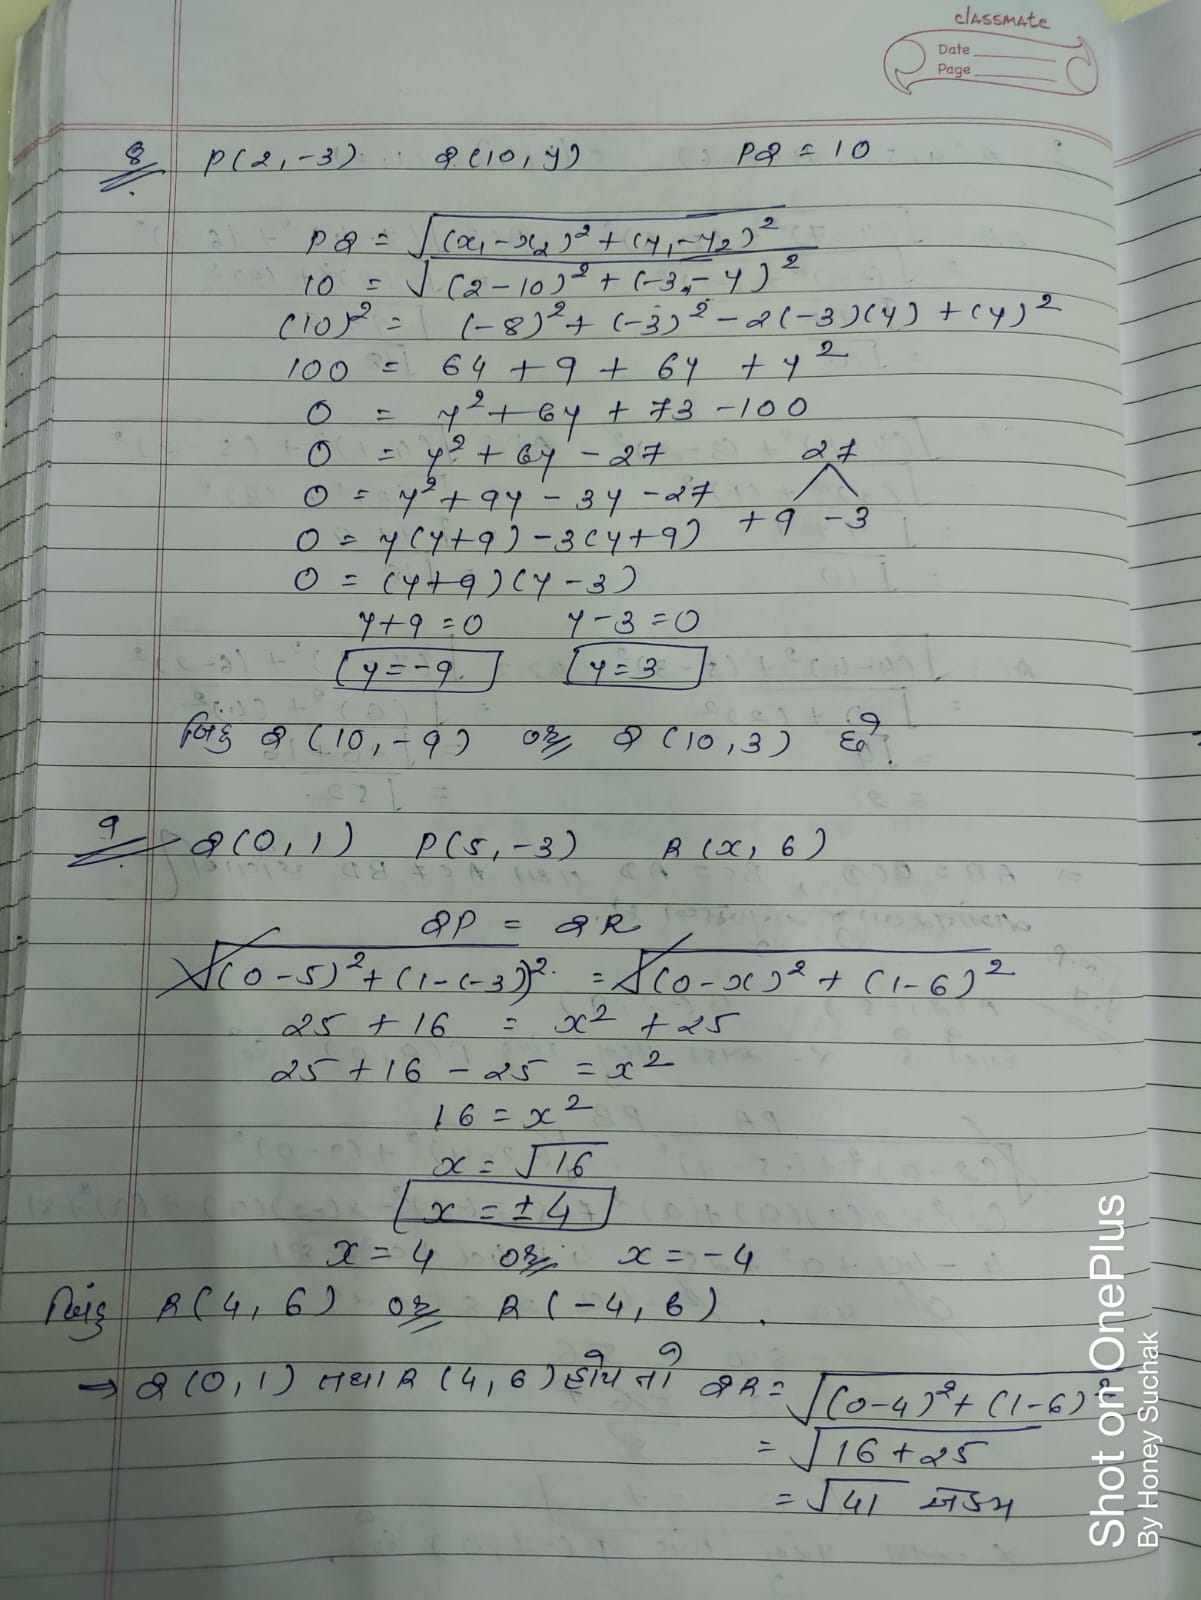 classmate
Date
Page
8 P(2,-3) Q(10,y) PQ = 10
PQ = √(x₁-x₂)² + (y₁-y₂)²
10 = √(2-10)² + (-3-y)²
(10)² = (-8)² + (-3)² - 2(-3)(y) + (y)²
100 = 64 + 9 + 6y + y²
0 = y² + 6y + 73 - 100
0 = y² + 6y - 27 27
0 = y² + 9y - 3y - 27 +9 -3
0 = y(y+9) - 3(y+9)
0 = (y+9)(y-3)
y+9=0 y-3=0
y=-9 y=3
બિંદુ Q(10,-9) or Q(10,3) છે.
9 Q(0,1) P(5,-3) R(x,6)
QP = QR
√(0-5)² + (1-(-3))² = √(0-x)² + (1-6)²
25 + 16 = x² + 25
25 + 16 - 25 = x²
16 = x²
x = √16
x = ±4
x = 4 or x = -4
બિંદુ R(4,6) or R(-4,6).
→ Q(0,1) તથા R(4,6) હોય તો QR = √(0-4)² + (1-6)²
= √16+25
= √41 એકમ
Shot on OnePlus
By Honey Suchak